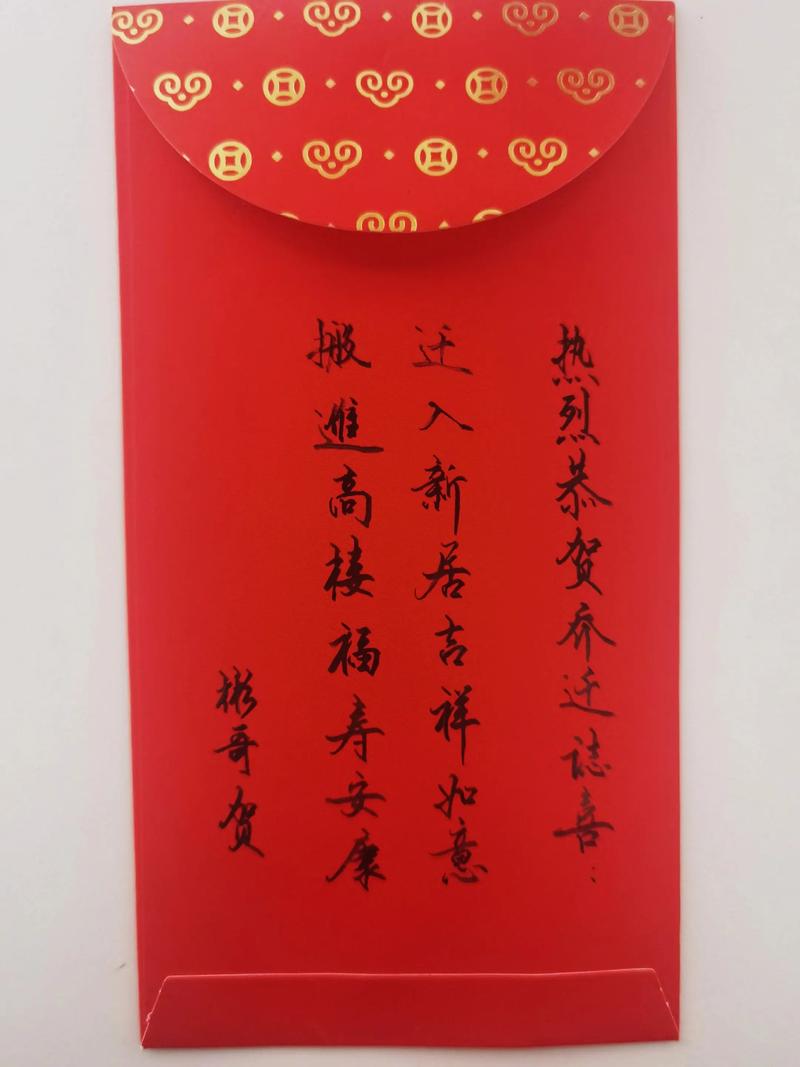 热烈恭贺乔迁誌喜:
迁入新居吉祥如意
搬進高楼福寿安康
彬哥贺